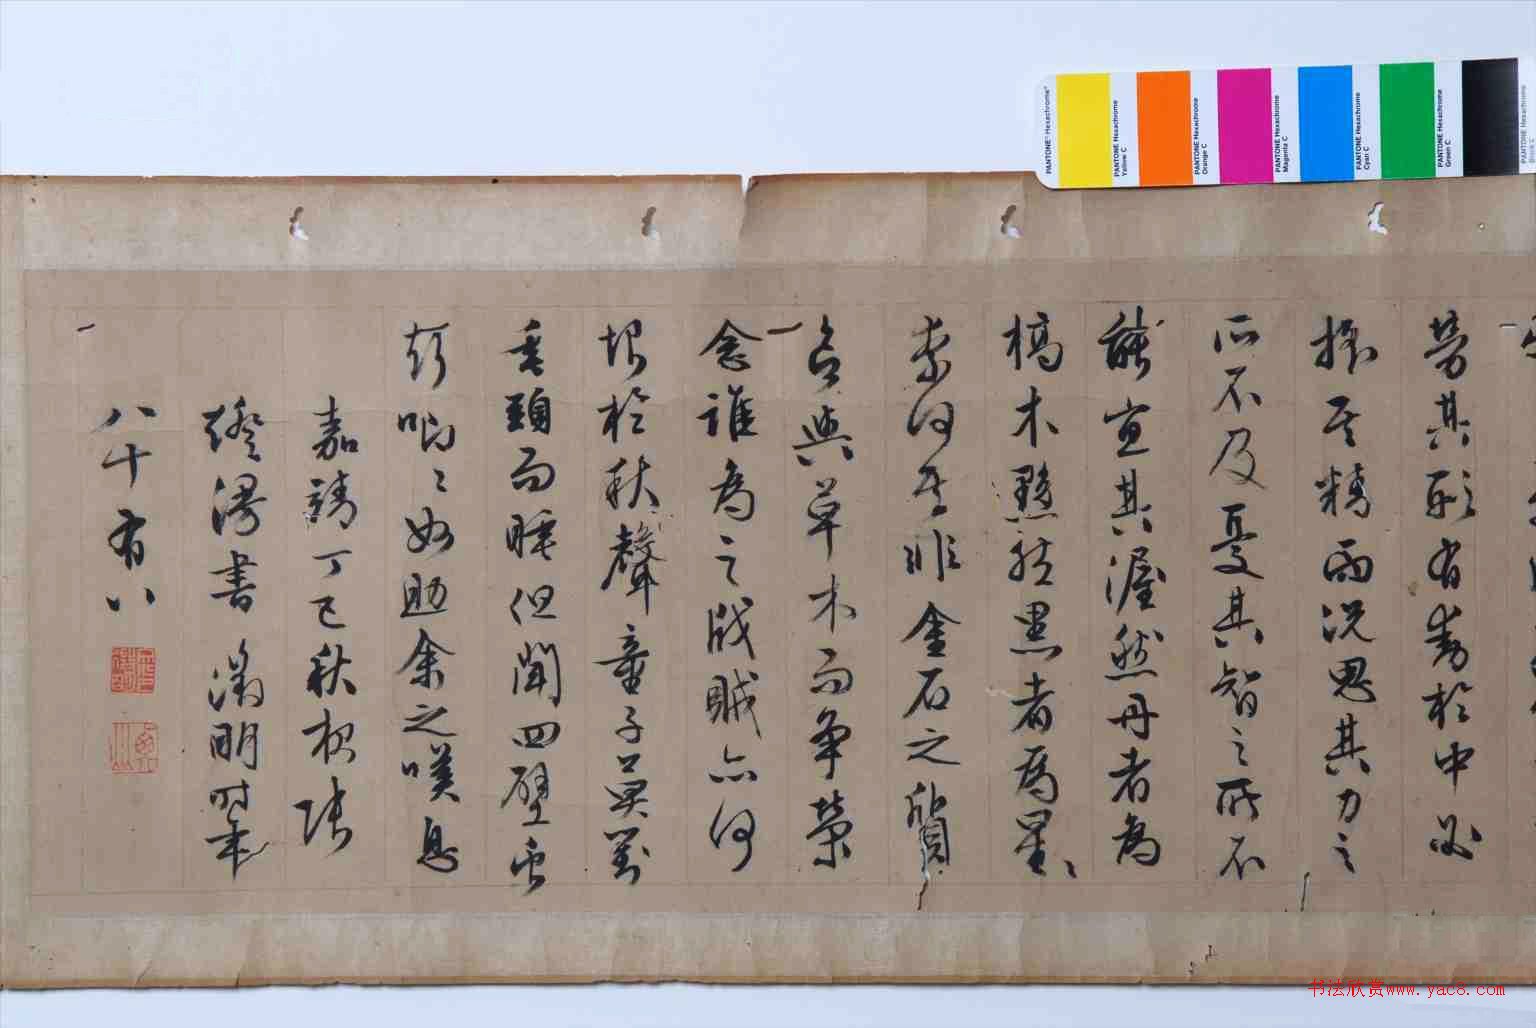 勞其形有動於中必
搖其精而況思其力之
所不及憂其智之所不
能宜其渥然丹者為
槁木黟然黑者為星〻
奈何其非金石之質
欲與草木而爭榮
念誰為之戕賊亦何
恨於秋聲童子莫對
垂頭而睡但聞四壁虫
聲唧〻如助余之嘆息
嘉靖丁巳秋夜張
燈漫書 徵明時年
八十有八
PANTONE® Hexachrome®
PANTONE Hexachrome Yellow C
PANTONE Hexachrome Orange C
PANTONE Hexachrome Magenta C
PANTONE Hexachrome Cyan C
PANTONE Hexachrome Green C
PANTONE Hexachrome Black C
书法欣赏www.yac8.com